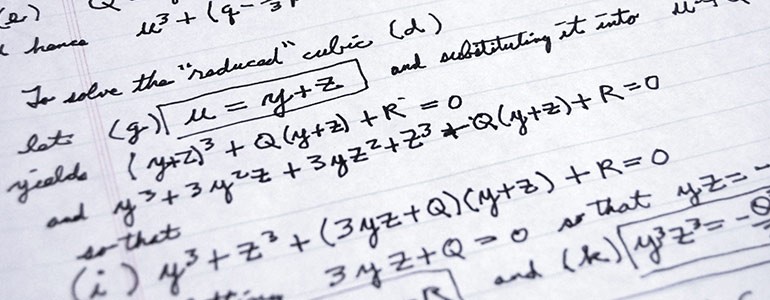 (e)
hence u³ + (q -
To solve the "reduced" cubic (d)
let (g) u = y+z and substituting it into u³+
yields (y+z)³ + Q(y+z) + R = 0
and y³ + 3y²z + 3yz² + z³ + Q(y+z) + R = 0
so that
(i) y³ + z³ + (3yz + Q)(y+z) + R = 0
3yz + Q = 0 so that yz = -
and (k) y³z³ = -Q
R